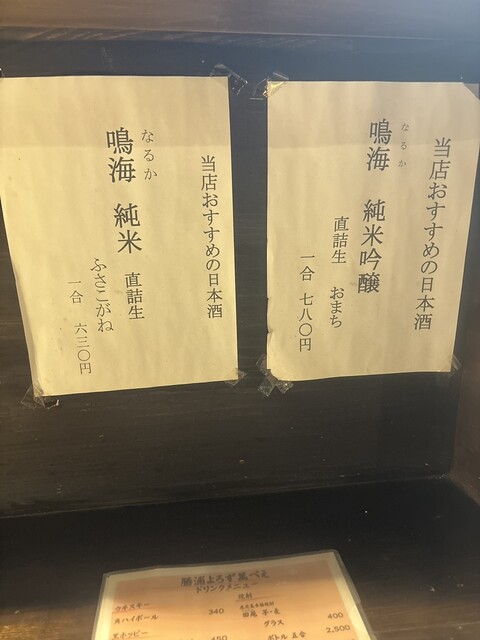 当店おすすめの日本酒
なるか
鳴海 純米吟醸
直詰生 おまち
一合 七八〇円
当店おすすめの日本酒
なるか
鳴海 純米 直詰生
ふさこがね
一合 六三〇円
勝浦よろず萬べえ
ドリンクメニュー
ウヰスキー
角ハイボール 340
黒ホッピー 450
焼酎
田苑 芋・麦
グラス 400
ボトル 五合 2,500